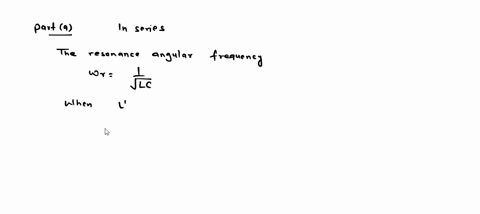 Part (a) In series
The resonance angular frequency
ωr = 1/√LC
When L'